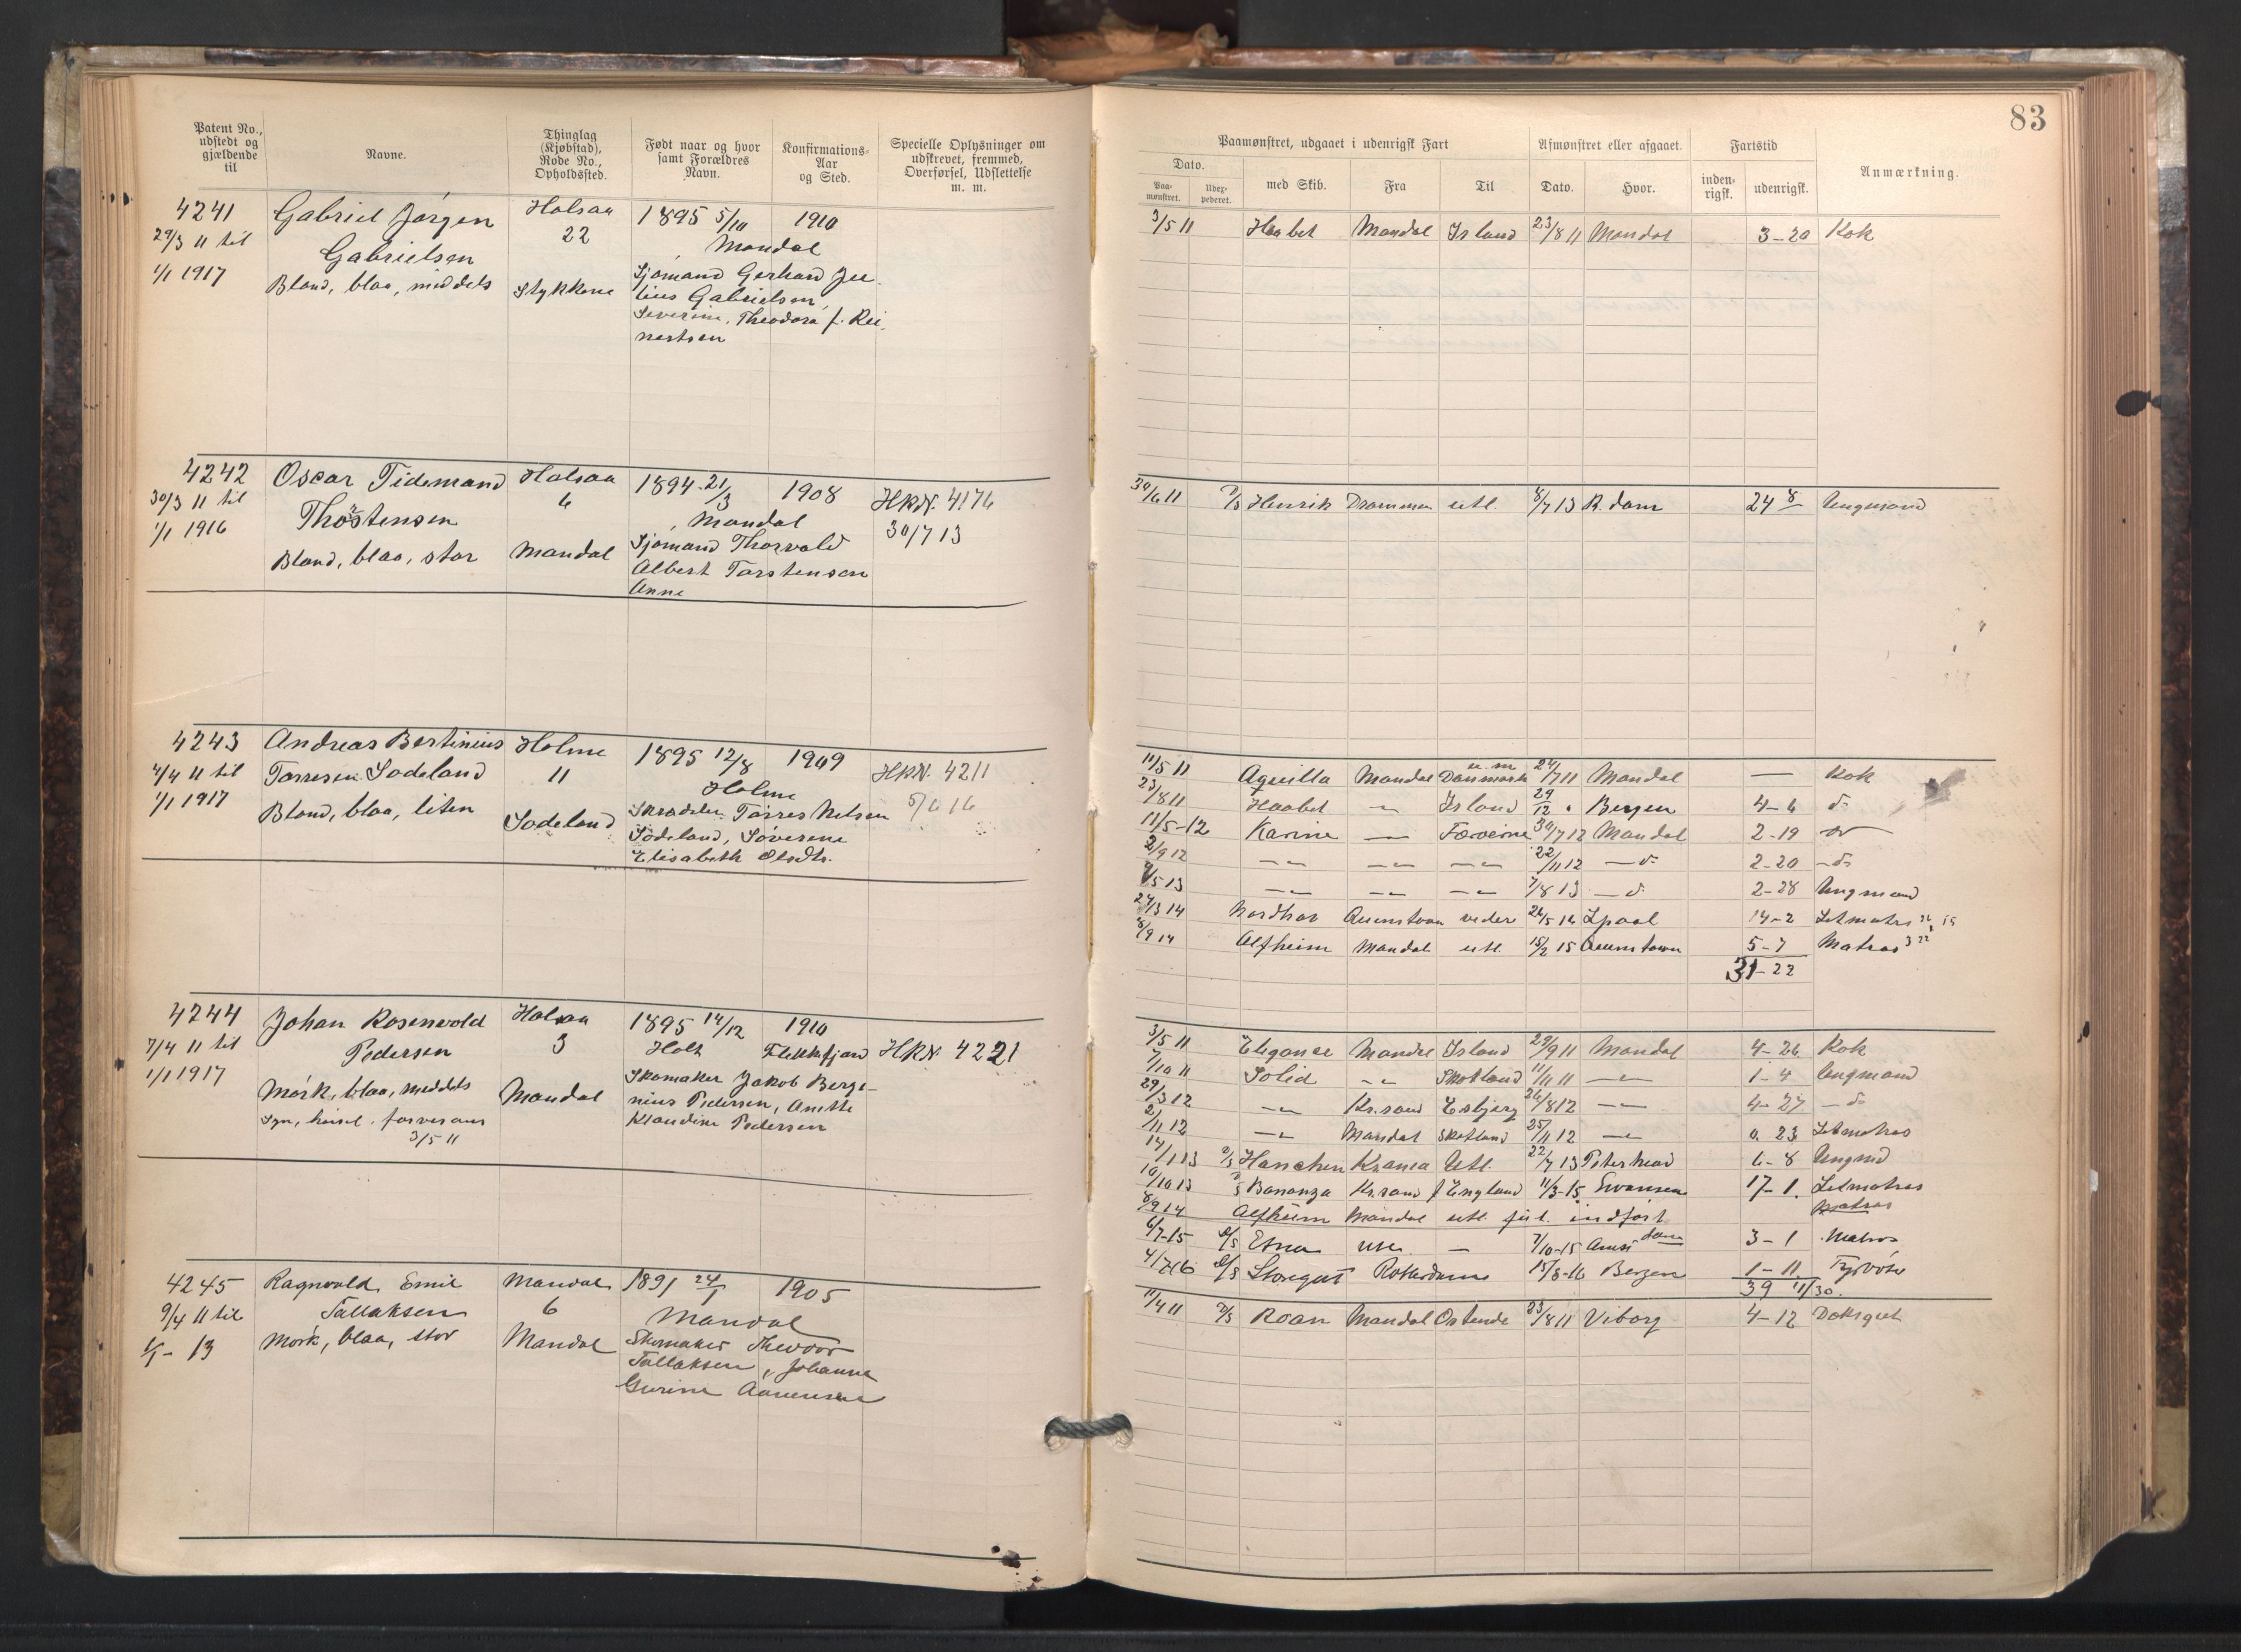 83
Patent No., udstedt og gjældende til
Navne.
Thinglag (Kjøbstad), Rode No., Opholdssted.
Født naar og hvor samt Forældres Navn.
Konfirmations-Aar og Sted.
Specielle Oplysninger om udskrevet, fremmed, Overførsel, Udslettelse m. m.
Paamønstret, udgaaet i udenrigsk Fart
Afmønstret eller afgaaet.
Fartstid
Anmærkning.
Dato.
Paa-mønstret.
Udex-pederet.
med Skib.
Fra
Til
Dato.
Hvor.
inden-rigsk.
udenrigsk.
4241 Gabriel Jørgen Halsaa 1895 5/10 1910
29/3 11 til Gabrielsen 22 Mandal
1/1 1917 Blond, blaa, middels Stykkene Sjømand Gerhard Ju-
lius Gabrielsen
Severine, Theodora f. Rei-
nertsen
3/5 11 Haabet Mandal Island 23/8 11 Mandal 3-20 Kok
4242 Oscar Tidemand Halsaa 1894 21/3 1908 HRN. 4176
30/3 11 til Thorstensen 6 Mandal 30/7 13
1/1 1916 Blond, blaa, stor Mandal Sjømand Thorvald
Albert Torstensen
Anne
30/6 11 D/S Henrik Drammen utl. 8/7 13 R.dam 24 8 Ungmand
4243 Andreas Bertinius Holme 1895 12/8 1909 HRN. 4211
4/4 11 til Torresen Sodeland 11 Holme 5/6 16
1/1 1917 Blond, blaa, liten Sodeland Skrædder Torres Nelsen
Sodeland, Søverene
Elisabeth Olsdtr.
11/5 11 Aquilla Mandal Danmark u. m 24/7 11 Mandal — Kok
23/8 11 Haabet — Island 29/12 Bergen 4-6 do
11/5-12 Karine — Færøerne 30/7 12 Mandal 2-19 do
2/9 12 — — — 22/11 12 — do 2-20 — do
9/5 13 — — — 7/8 13 — do 2-28 Ungmand
24/3 14 Nordhav Queenstown videre 26/5 14 Lpool 14-2 Letmatros
8/9 14 Alfheim Mandal utl. 15/2 15 Queenstown 5-7 Matros
31-22
4244 Johan Rosenvold Halsaa 1895 14/12 1910
7/4 11 til Pedersen 3 Holt Flekkefjord HRN. 4221
1/1 1917 Mørk, blaa, middels Mandal Skomaker Jakob Bergi-
Syn, hørsel, farvesans nius Pedersen, Anette
3/5 11 Klaudine Pedersen
3/5 11 Elegance Mandal Island 29/9 11 Mandal 4-26 Kok
7/10 11 Solid — Skotland 11/11 11 — 1-4 Ungmand
29/3 12 — Kr.sand Esbjerg 26/8 12 — 4-27 — do
2/11 12 — Mandal Skotland 25/11 12 — 0. 23 Letmatros
14/1 13 D/S Hanchen Krania Utl. 22/7 13 Peterhead 6-8 Ungmd
10/10 13 D/S Bonanza Kr.sand England 11/3-15 Swansea 17-1. Letmatros
8/9 14 Alfheim Mandal utl. feil indført Matros
6/7-15 D/S Etna — 7/10-15 Amst dam 3-1 Matros
4/7 16 D/S Storegut Rotterdam 15/8-16 Bergen 1-11 Fyrbøter
39 11/30.
4245 Ragnvald Emil Mandal 1891 24/1 1905
9/4 11 til Tallaksen 6 Mandal
1/1- 13 Mørk, blaa, stor Mandal Skomaker Theodor
Tallaksen, Johanne
Gurine Aanensen
11/4 11 D/S Roan Mandal Ostende 23/8 11 Viborg 4-12 Doksgut